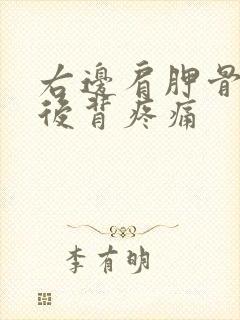 右邊肩胛骨
後背疼痛
李有明